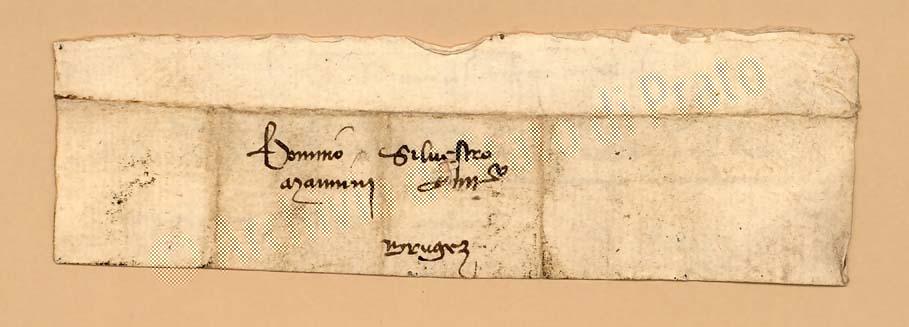 Domino Silvestro
Mannini
Bruges
© Archivio di Stato di Prato